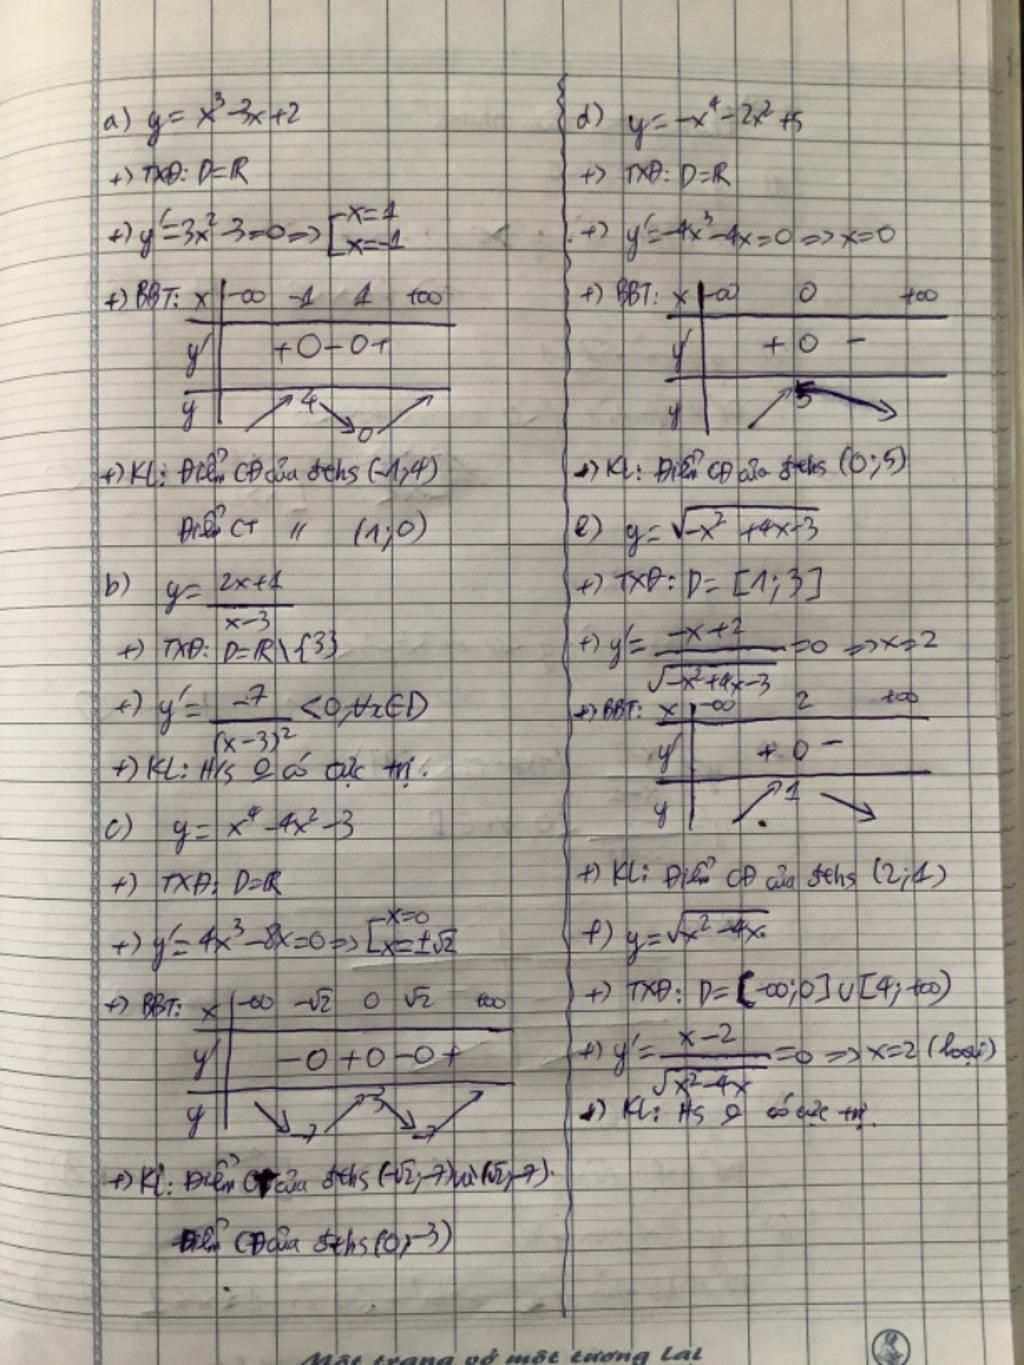 a) y = x³-3x+2
+) TXĐ: D=R
+) y'=3x²-3=0=> [x=1
x=-1
+) BBT: x -∞ -1 1 +∞
y' +0-0+
y 4 0
+) KL: Điểm CĐ của đths (-1;4)
Điểm CT " (1;0)
b) y = 2x+1
x-3
+) TXĐ: D=R\{3}
+) y' = -7/(x-3)² <0,∀x∈D
+) KL: Hs 0 có cực trị.
c) y = x⁴-4x²-3
+) TXĐ: D=R
+) y'=4x³-8x=0=> [x=0
x=±√2
+) BBT: x -∞ -√2 0 √2 +∞
y' -0+0-0+
y -7 -3 -7
+) KL: Điểm CT của đths (-√2;-7) và (√2;-7).
Điểm CĐ của đths (0;-3)
d) y=-x⁴-2x²+5
+) TXĐ: D=R
+) y'=-4x³-4x=0=>x=0
+) BBT: x -∞ 0 +∞
y' + 0 -
y 5
+) KL: Điểm CĐ của đths (0;5)
e) y=√-x²+4x-3
+) TXĐ: D= [1;3]
+) y'= -x+2/√-x²+4x-3 =0 =>x=2
+) BBT: x -∞ 2 +∞
y' + 0 -
y 1
+) KL: Điểm CĐ của đths (2;1)
f) y=√x²-4x
+) TXĐ: D= [-∞;0]∪[4;+∞)
+) y'= x-2/√x²-4x =0 =>x=2 (loại)
+) KL: Hs 0 có cực trị.
Một trang vở một tương lai